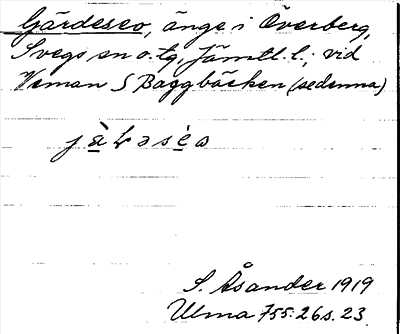 Gärdeseo, änge i Överberg,
Svegs sn o. tg, Jämtl. l.; vid
Veman S Baggbäcken (sedenna)
S. Åsander 1919
Ulma 755:26 s. 23